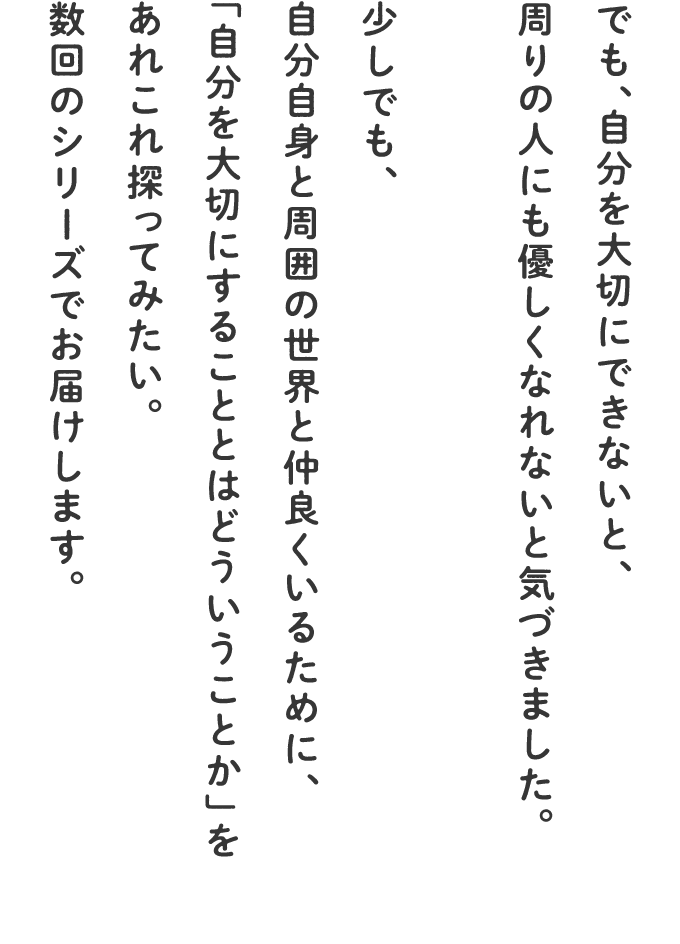 でも、自分を大切にできないと、
周りの人にも優しくなれないと気づきました。
少しでも、
自分自身と周囲の世界と仲良くいるために、
「自分を大切にすることとはどういうことか」を
あれこれ探ってみたい。
数回のシリーズでお届けします。